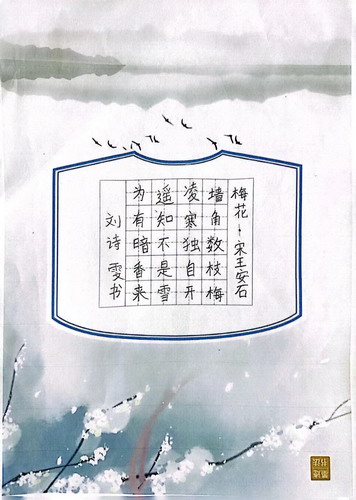 梅花·宋王安石
墙角数枝梅
凌寒独自开
遥知不是雪
为有暗香来
刘诗雯书